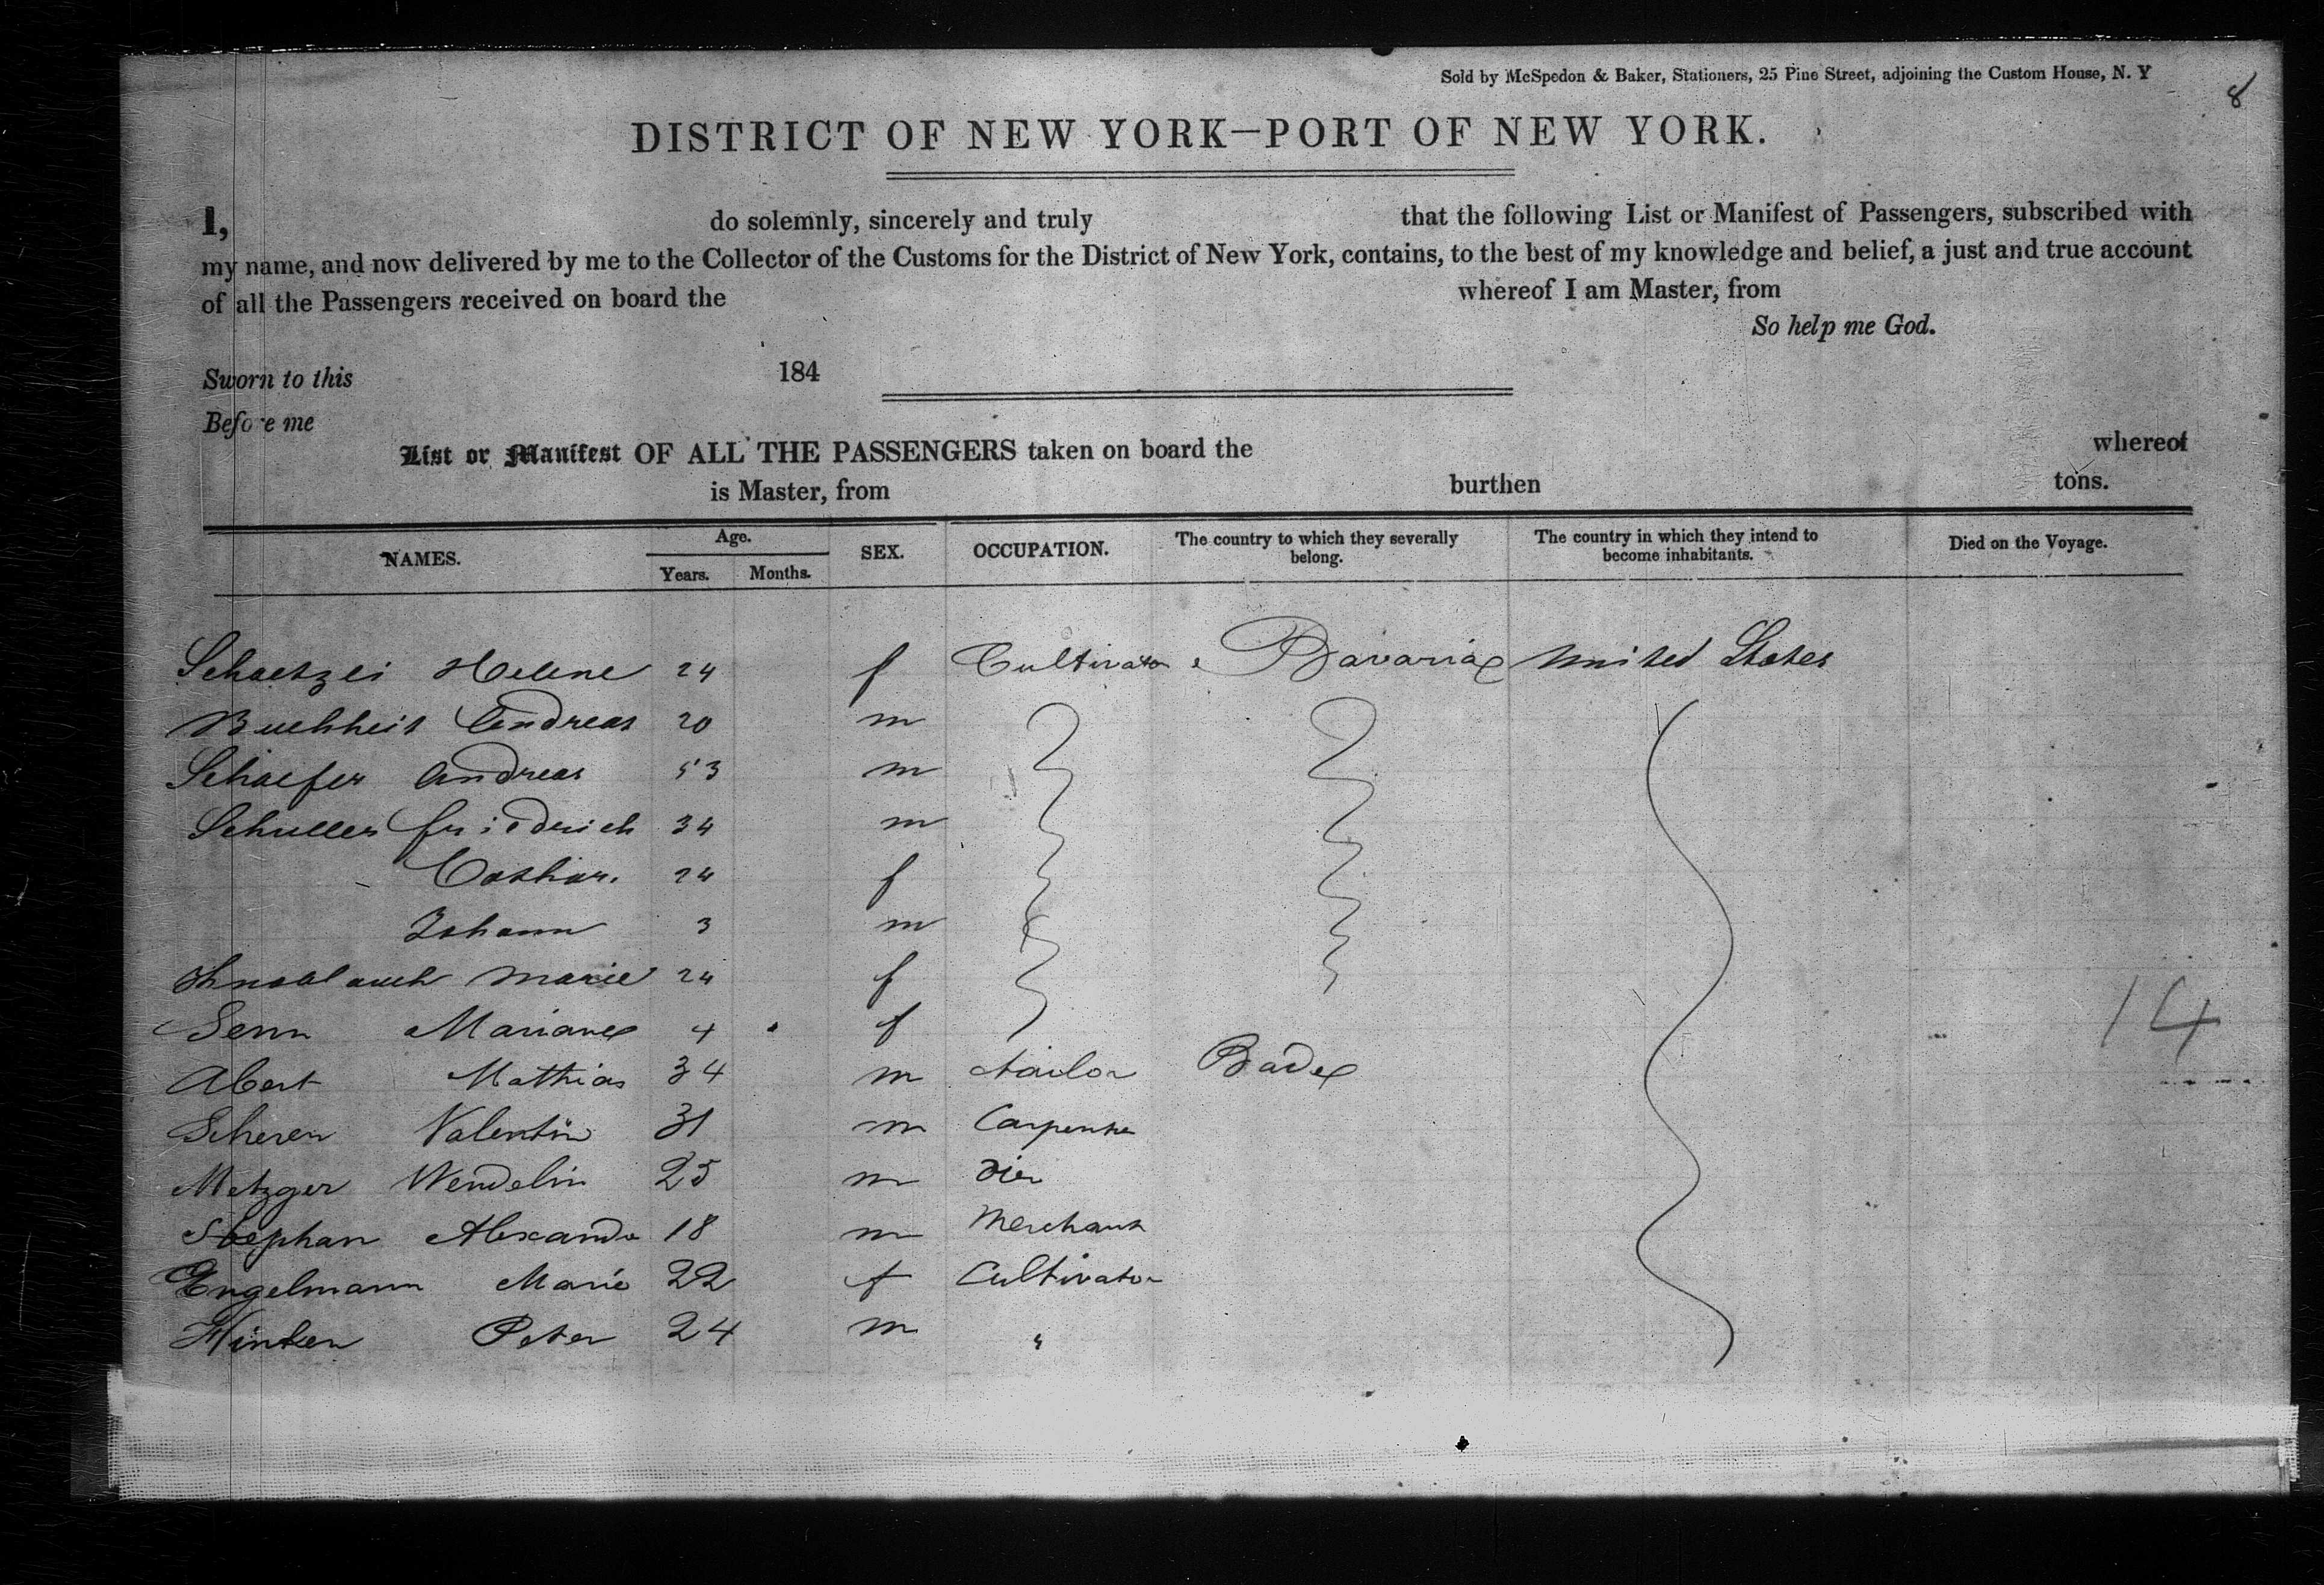 Sold by McSpedon & Baker, Stationers, 25 Pine Street, adjoining the Custom House, N. Y
8
DISTRICT OF NEW YORK—PORT OF NEW YORK.
I, do solemnly, sincerely and truly that the following List or Manifest of Passengers, subscribed with
my name, and now delivered by me to the Collector of the Customs for the District of New York, contains, to the best of my knowledge and belief, a just and true account
of all the Passengers received on board the whereof I am Master, from
So help me God.
Sworn to this 184
Before me
List or Manifest OF ALL THE PASSENGERS taken on board the whereof
is Master, from burthen tons.
NAMES. Age. Years. Months. SEX. OCCUPATION. The country to which they severally belong. The country in which they intend to become inhabitants. Died on the Voyage.
Helene 24 f Cultivator Bavaria United States
Buchheit Andreas 20 m
Schaefer Andreas 53 m
Schuller friedrich 34 m
Cathar. 24 f
Johann 3 m
Knoblauch Marie 24 f
Senn Mariane 4 f
Abert Mathias 34 m tailor Bade
Scherer Valentin 31 m Carpenter
Metzger Wendelin 25 m dier
Stephan Alexander 18 m Merchant
Engelmann Marie 22 f Cultivator
Peter 24 m "
14